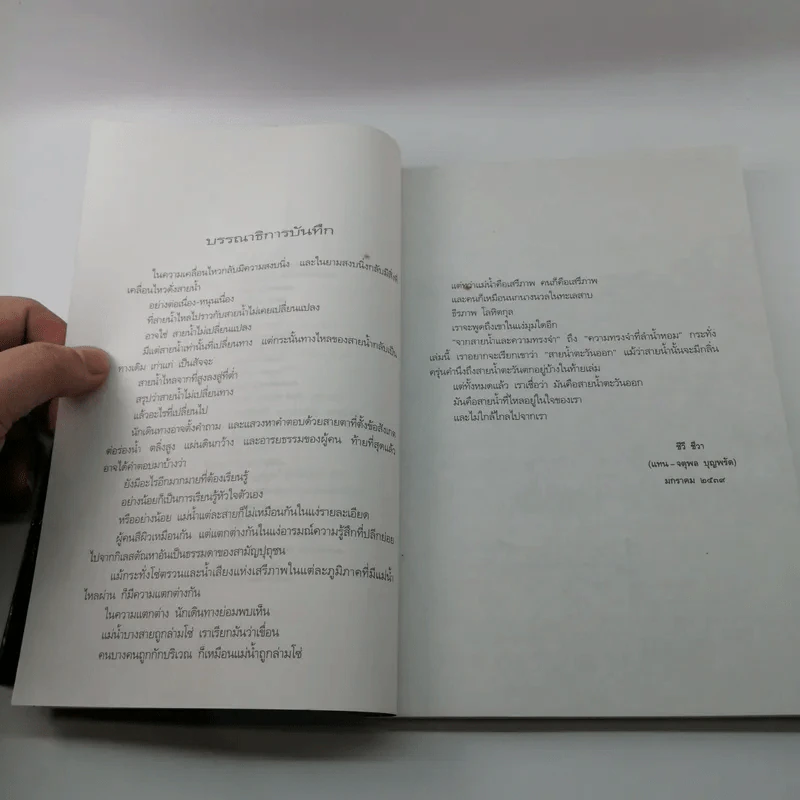 บรรณาธิการบันทึก
ในความเคลื่อนไหวกลับมีความสงบนิ่ง และในยามสงบนิ่งกลับมีสิ่งที่
เคลื่อนไหวดั่งสายน้ำ
อย่างต่อเนื่อง-หนุนเนื่อง
ที่สายน้ำไหลไปราวกับสายน้ำไม่เคยเปลี่ยนแปลง
อาจใช่ สายน้ำไม่เปลี่ยนแปลง
มีแต่สายน้ำเท่านั้นที่เปลี่ยนทาง แต่กระนั้นทางไหลของสายน้ำกลับเป็น
ทางเดิม เก่าแก่ เป็นสัจจะ
สายน้ำไหลจากที่สูงลงสู่ที่ต่ำ
สรุปว่าสายน้ำไม่เปลี่ยนทาง
แล้วอะไรที่เปลี่ยนไป
นักเดินทางอาจตั้งคำถาม และแสวงหาคำตอบด้วยสายตาที่ตั้งข้อสังเกต
ต่อร่องน้ำ ตลิ่งสูง แผ่นดินกว้าง และอารยธรรมของผู้คน ท้ายที่สุดแล้ว
อาจได้คำตอบมาบ้างว่า
ยังมีอะไรอีกมากมายที่ต้องเรียนรู้
อย่างน้อยก็เป็นการเรียนรู้หัวใจตัวเอง
หรืออย่างน้อย แม่น้ำแต่ละสายก็ไม่เหมือนกันในแง่รายละเอียด
ผู้คนสีผิวเหมือนกัน แต่แตกต่างกันในแง่อารมณ์ความรู้สึกที่ปลีกย่อย
ไปจากกิเลสตัณหาอันเป็นธรรมดาของสามัญปุถุชน
แม้กระทั่งโซ่ตรวนและน้ำเสียงแห่งเสรีภาพในแต่ละภูมิภาคที่มีแม่น้ำ
ไหลผ่าน ก็มีความแตกต่างกัน
ในความแตกต่าง นักเดินทางย่อมพบเห็น
แม่น้ำบางสายถูกล่ามโซ่ เราเรียกมันว่าเขื่อน
คนบางคนถูกกักบริเวณ ก็เหมือนแม่น้ำถูกล่ามโซ่
แต่ว่าแม่น้ำคือเสรีภาพ คนก็คือเสรีภาพ
และคนก็เหมือนนกนางนวลในทะเลสาบ
ธีรภาพ โลหิตกุล
เราจะพูดถึงเขาในแง่มุมใดอีก
“จากสายน้ำและความทรงจำ” ถึง “ความทรงจำที่ลำน้ำหอม” กระทั่ง
เล่มนี้ เราอยากจะเรียกเขาว่า “สายน้ำตะวันออก” แม้ว่าสายน้ำนั้นจะมีกลิ่น
ครุ่นคำนึงถึงสายน้ำตะวันตกอยู่บ้างในท้ายเล่ม
แต่ทั้งหมดแล้ว เราเชื่อว่า มันคือสายน้ำตะวันออก
มันคือสายน้ำที่ไหลอยู่ในใจของเรา
และไม่ใกล้ไกลไปจากเรา
ชีวี ชีวา
(แทน - จตุพล บุญพรัด)
มกราคม ๒๕๓๙